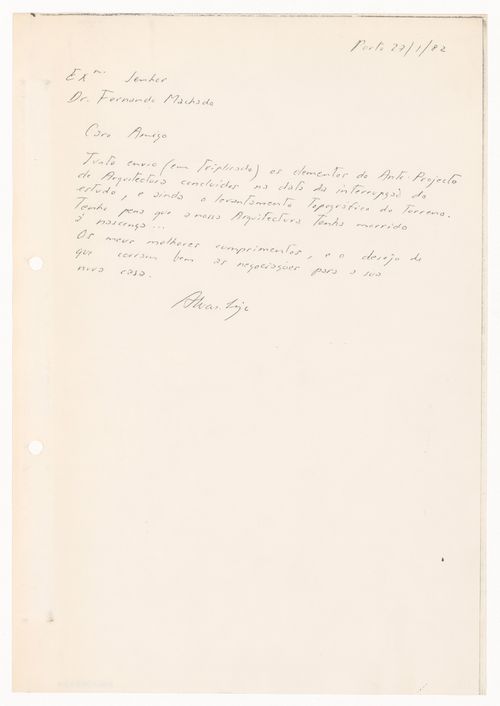 Porto 27/1/82
Exmº Senhor
Dr. Fernando Machado
Caro Amigo
Junto envio (em triplicado) os elementos do Ante-Projecto
de Arquitectura concluídos na data da interrupção do
estudo, e ainda o levantamento topográfico do terreno.
Tenho pena que a nossa Arquitectura tenha morrido
à nascença...
Os meus melhores cumprimentos, e o desejo de
que corram bem as negociações para a sua
nova casa.
Alvaro Siza